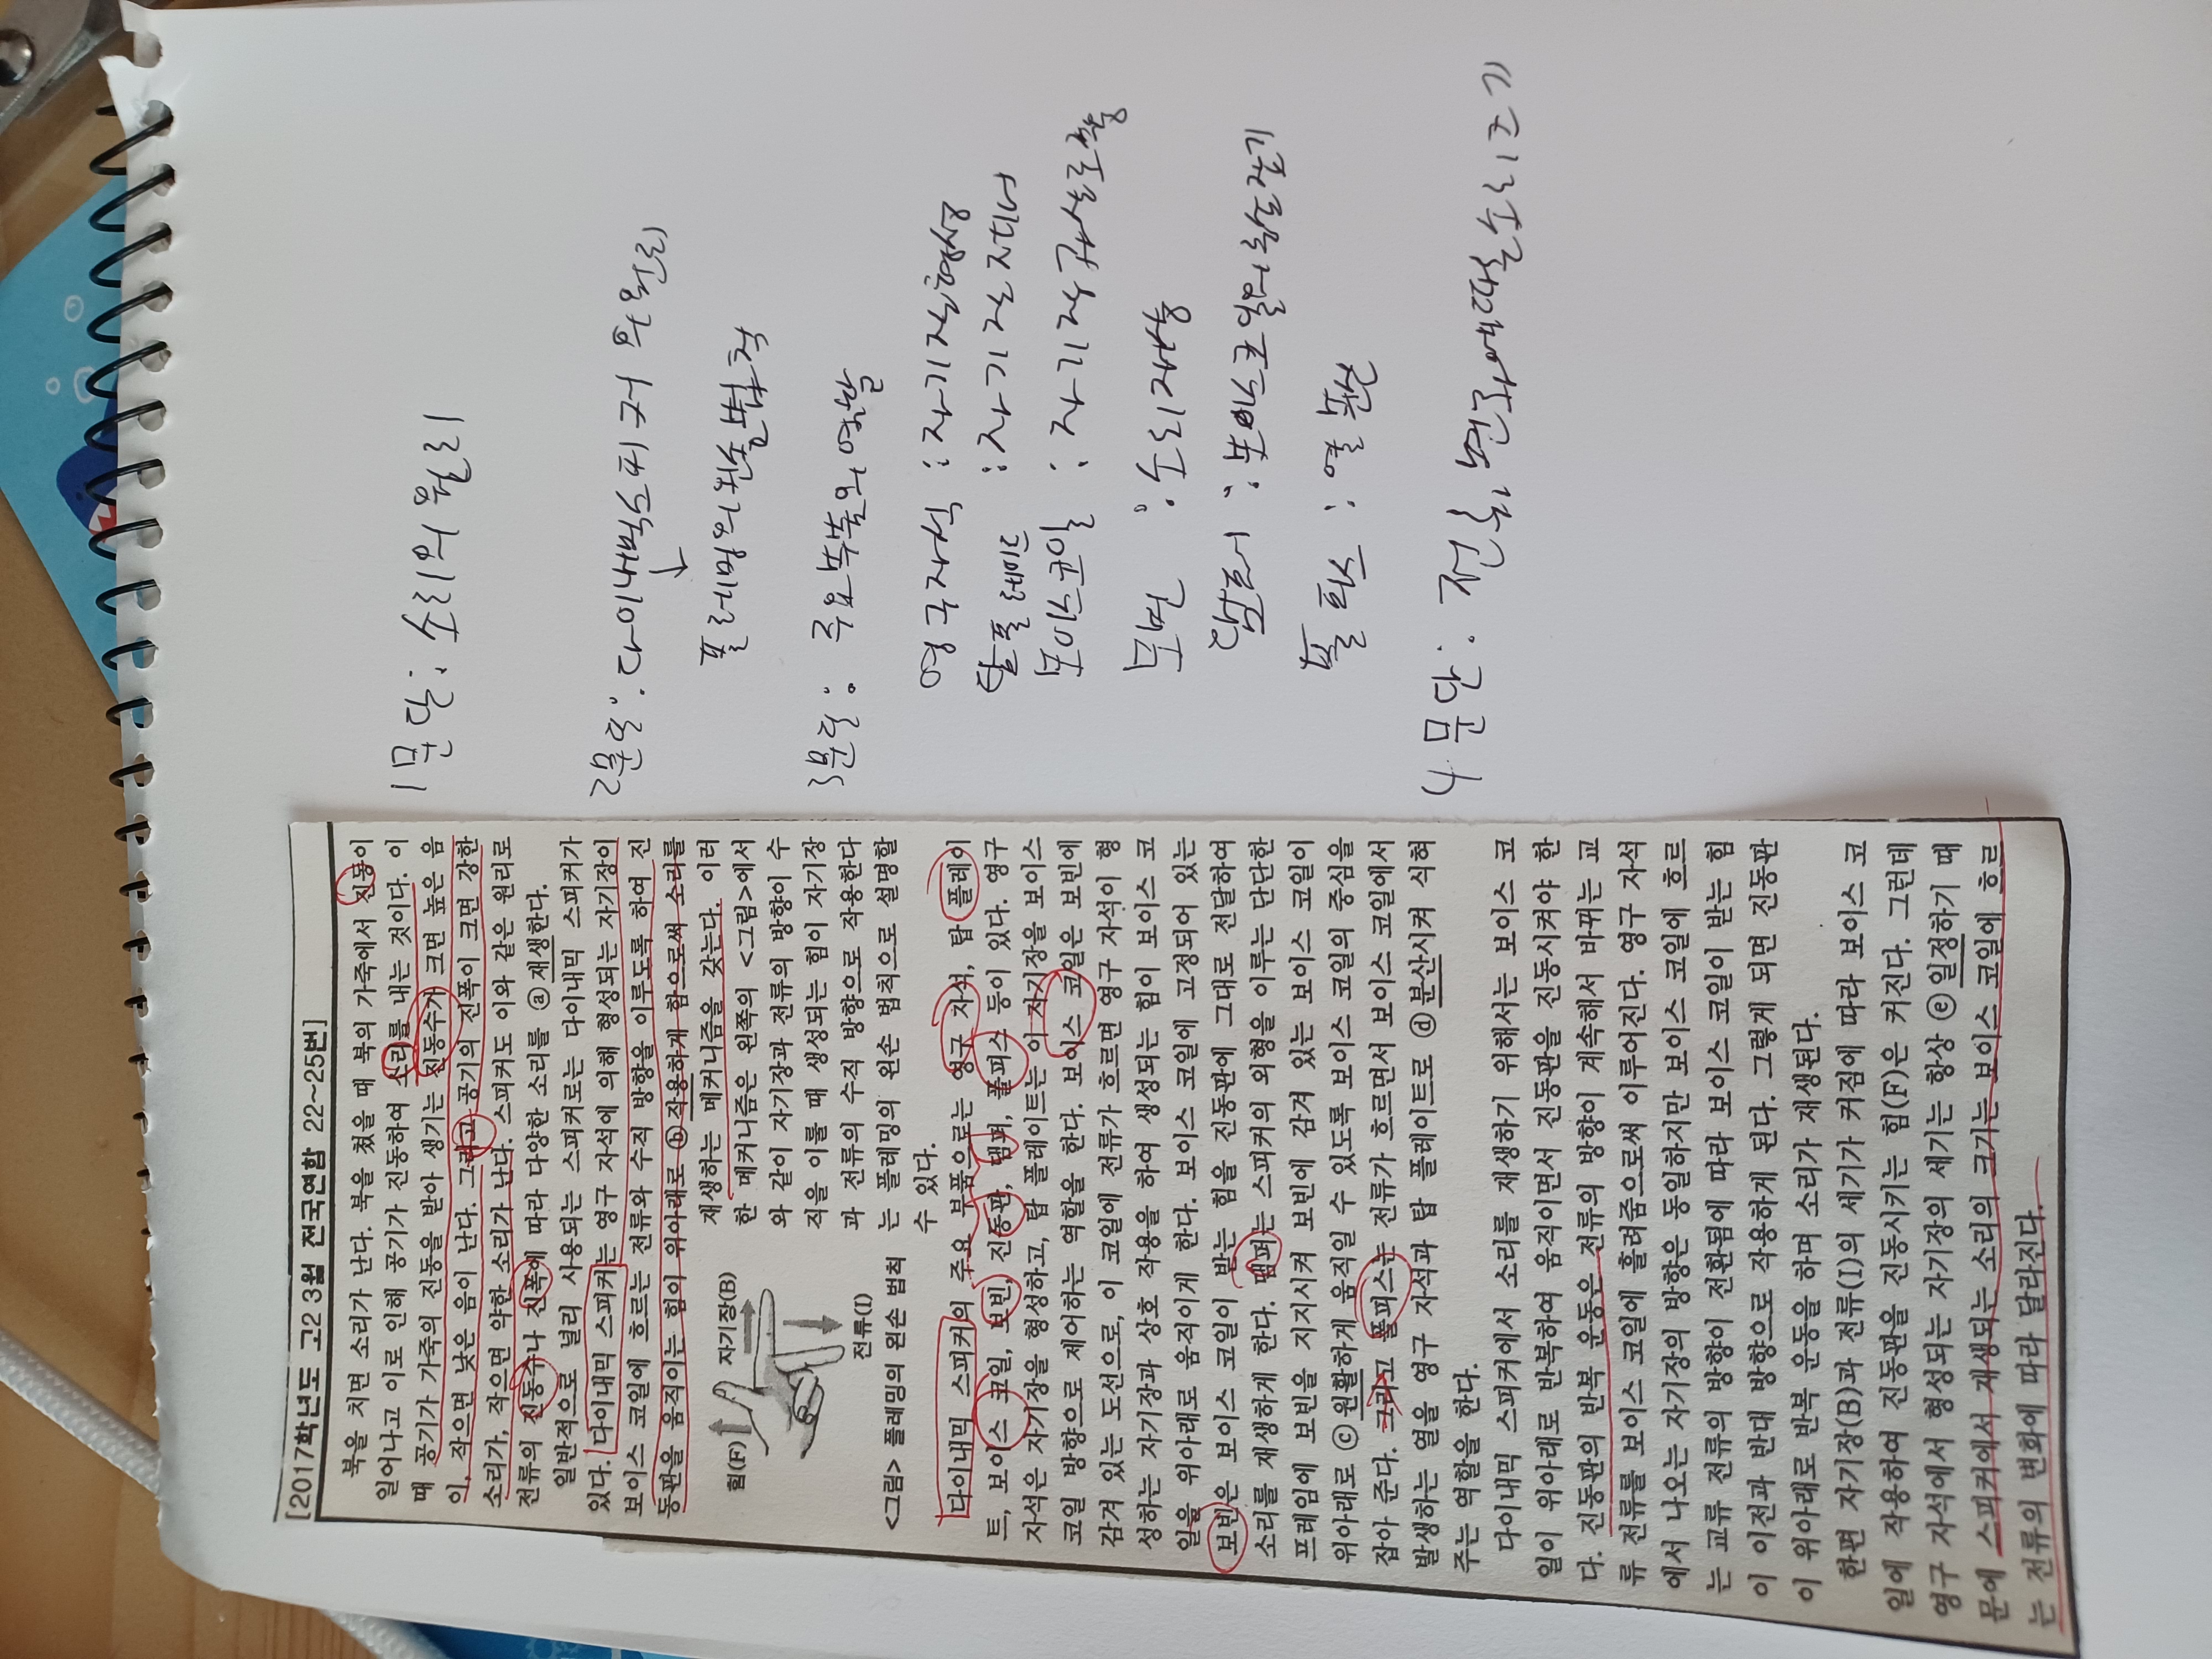 [2017학년도 고2 3월 전국연합 22~25번]
북을 치면 소리가 난다. 북을 쳤을 때 북의 가죽에서 진동이
일어나고 이로 인해 공기가 진동하여 소리를 내는 것이다. 이
때 공기가 가죽의 진동을 받아 생기는 진동수가 크면 높은 음
이, 작으면 낮은 음이 난다. 그리고 공기의 진폭이 크면 강한
소리가, 작으면 약한 소리가 난다. 스피커도 이와 같은 원리로
전류의 진동수나 진폭에 따라 다양한 소리를 ⓐ재생한다.
일반적으로 널리 사용되는 스피커로는 다이내믹 스피커가
있다. 다이내믹 스피커는 영구 자석에 의해 형성되는 자기장이
보이스 코일에 흐르는 전류와 수직 방향을 이루도록 하여 진
동판을 움직이는 힘이 위아래로 ⓑ작용하게 함으로써 소리를
재생하는 메커니즘을 갖는다. 이러
한 메커니즘은 왼쪽의 <그림>에서
와 같이 자기장과 전류의 방향이 수
직을 이룰 때 생성되는 힘이 자기장
과 전류의 수직 방향으로 작용한다
는 플레밍의 왼손 법칙으로 설명할
수 있다.
힘(F)
자기장(B)
전류(I)
<그림> 플레밍의 왼손 법칙
다이내믹 스피커의 주요 부품으로는 영구 자석, 탑 플레이
트, 보이스 코일, 보빈, 진동판, 댐퍼, 폴피스 등이 있다. 영구
자석은 자기장을 형성하고, 탑 플레이트는 이 자기장을 보이스
코일 방향으로 제어하는 역할을 한다. 보이스 코일은 보빈에
감겨 있는 도선으로, 이 코일에 전류가 흐르면 영구 자석이 형
성하는 자기장과 상호 작용을 하여 생성되는 힘이 보이스 코
일을 위아래로 움직이게 한다. 보이스 코일에 고정되어 있는
보빈은 보이스 코일이 받는 힘을 진동판에 그대로 전달하여
소리를 재생하게 한다. 댐퍼는 스피커의 외형을 이루는 단단한
프레임에 보빈을 지지시켜 보빈에 감겨 있는 보이스 코일이
위아래로 ⓒ원활하게 움직일 수 있도록 보이스 코일의 중심을
잡아 준다. 그리고 폴피스는 전류가 흐르면서 보이스 코일에서
발생하는 열을 영구 자석과 탑 플레이트로 ⓓ분산시켜 식혀
주는 역할을 한다.
다이내믹 스피커에서 소리를 재생하기 위해서는 보이스 코
일이 위아래로 반복하여 움직이면서 진동판을 진동시켜야 한
다. 진동판의 반복 운동은 전류의 방향이 계속해서 바뀌는 교
류 전류를 보이스 코일에 흘려줌으로써 이루어진다. 영구 자석
에서 나오는 자기장의 방향은 동일하지만 보이스 코일에 흐르
는 교류 전류의 방향이 전환됨에 따라 보이스 코일이 받는 힘
이 이전과 반대 방향으로 작용하게 된다. 그렇게 되면 진동판
이 위아래로 반복 운동을 하며 소리가 재생된다.
한편 자기장(B)과 전류(I)의 세기가 커짐에 따라 보이스 코
일에 작용하여 진동판을 진동시키는 힘(F)은 커진다. 그런데
영구 자석에서 형성되는 자기장의 세기는 항상 ⓔ일정하기 때
문에 스피커에서 재생되는 소리의 크기는 보이스 코일에 흐르
는 전류의 변화에 따라 달라진다.
1문단: 소리의 원리
2문단: 다이내믹스피커의 원리
↓
플레밍의 왼손법칙
3문단: 주요부품의 역할
영구자석 : 자기장형성
탑플레이트 : 자기장제어
보이스코일 : 자기장과상호작용
보빈 : 소리재생
댐퍼 : 보이스코일의중심잡기
폴피스 : 열 분산
4문단: 전류변화에따른소리크기